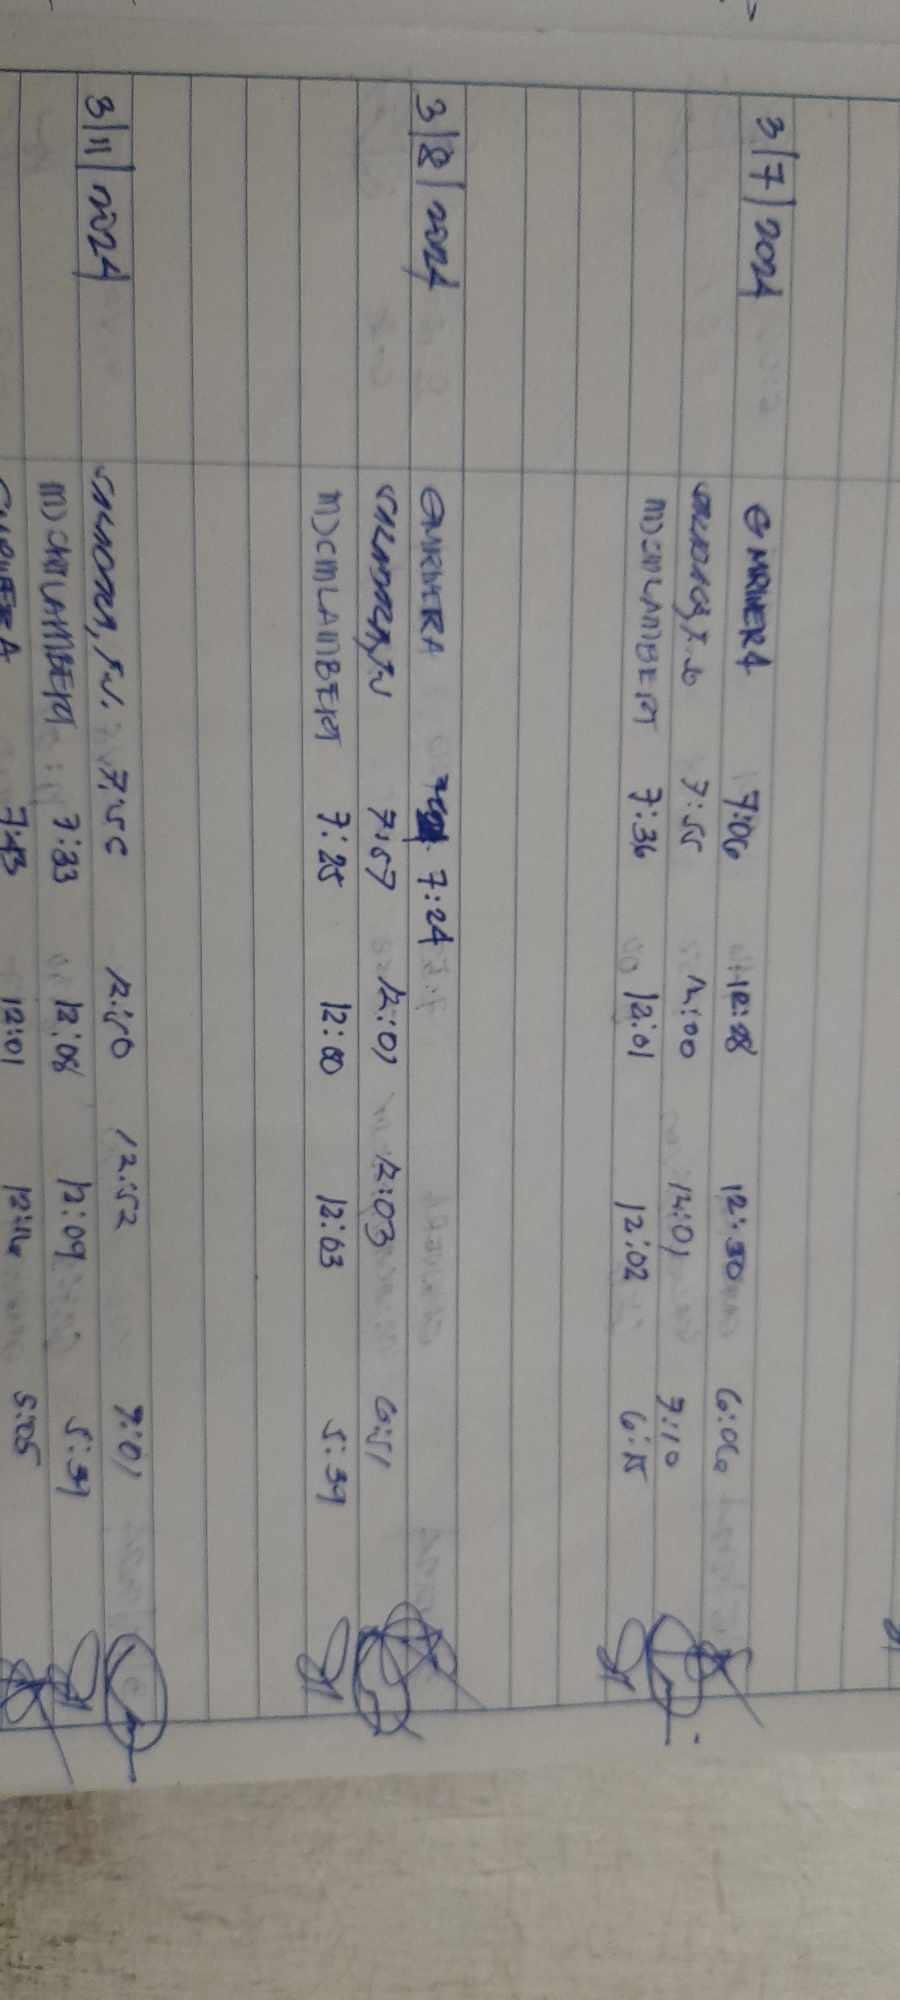 3/7/2024 GMRNERA 7:06 12:28 12:30 6:06
7:55 12:00 12:01 7:10
MJCMLAMBERT 7:36 12:01 12:02 6:15
3/8/2024 GMRNERA 7:24
7:57 12:01 12:03 6:51
MJCMLAMBERT 7:25 12:00 12:03 5:39
3/11/2024 7:56 12:50 12:52 7:01
MJCMLAMBERT 7:33 12:08 12:09 5:39
7:43 12:01 12:16 5:05